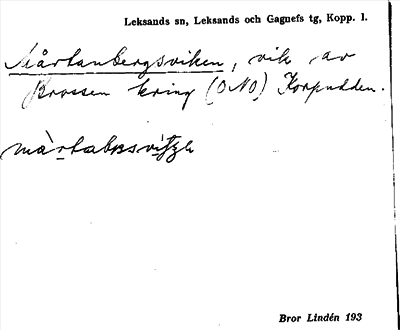 Leksands sn, Leksands och Gagnefs tg, Kopp. l.
Mårtanbergsviken, vik av
Brossen kring (ONO) Korpudden.
Bror Lindén 193